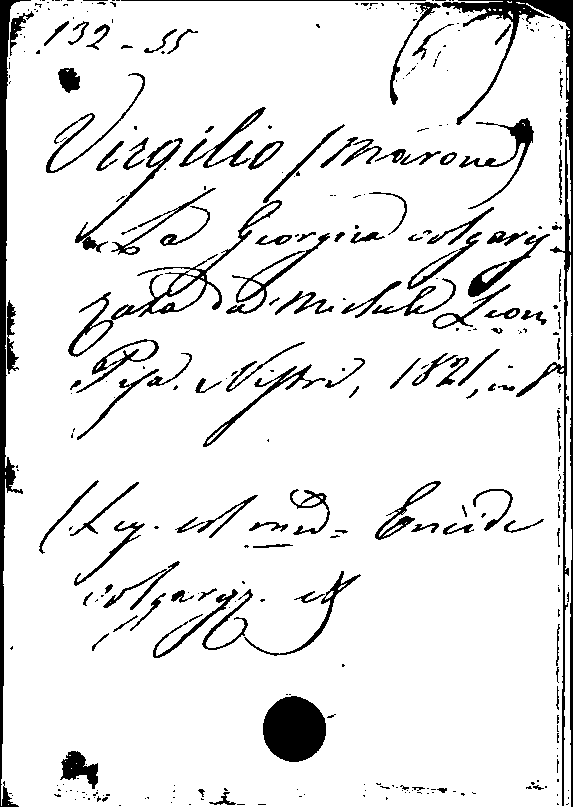 132-55 (5)
Virgilio (Marone)
La Georgica volgariz-
zata da Michele Leoni
Pisa. Nistri, 1821, in 8º
(Leg. col med = Eneide
volgarizz. etc)